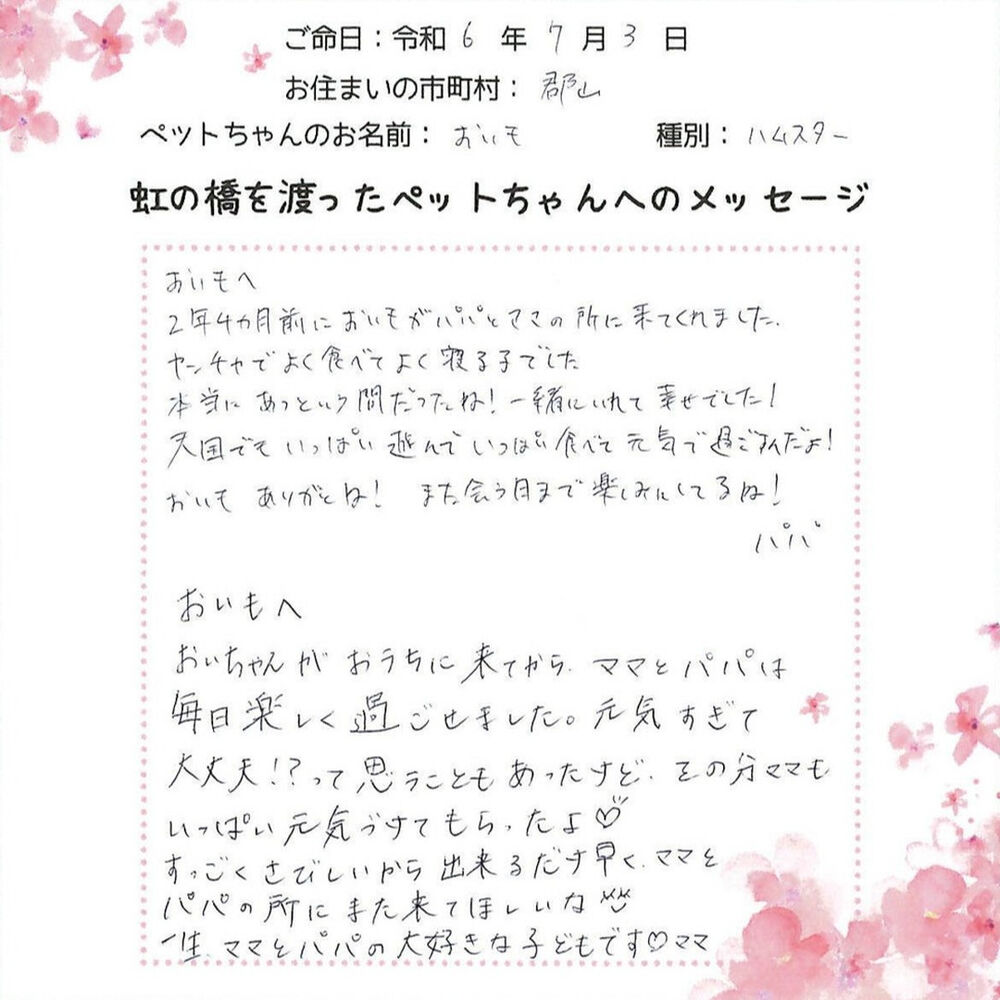 ご命日：令和 6 年 7 月 3 日
お住まいの市町村： 郡山
ペットちゃんのお名前： おいも 種別： ハムスター
虹の橋を渡ったペットちゃんへのメッセージ
おいもへ
2年4カ月前においもがパパとママの所に来てくれました.
ヤンチャでよく食べてよく寝る子でした
本当にあっという間だったね！一緒にいれて幸せでした！
天国でもいっぱい遊んでいっぱい食べて元気で過ごすんだよ！
おいも ありがとね！ また会う日まで楽しみにしてるね！
パパ
おいもへ
おいちゃんがおうちに来てから、ママとパパは
毎日楽しく過ごせました。元気すぎて
大丈夫！？って思うこともあったけど、その分ママも
いっぱい元気うけてもらったよ♡
すっごくさびしいから出来るだけ早く、ママと
パパの所にまた来てほしいな
一生、ママとパパの大好きな子どもです♡ママ